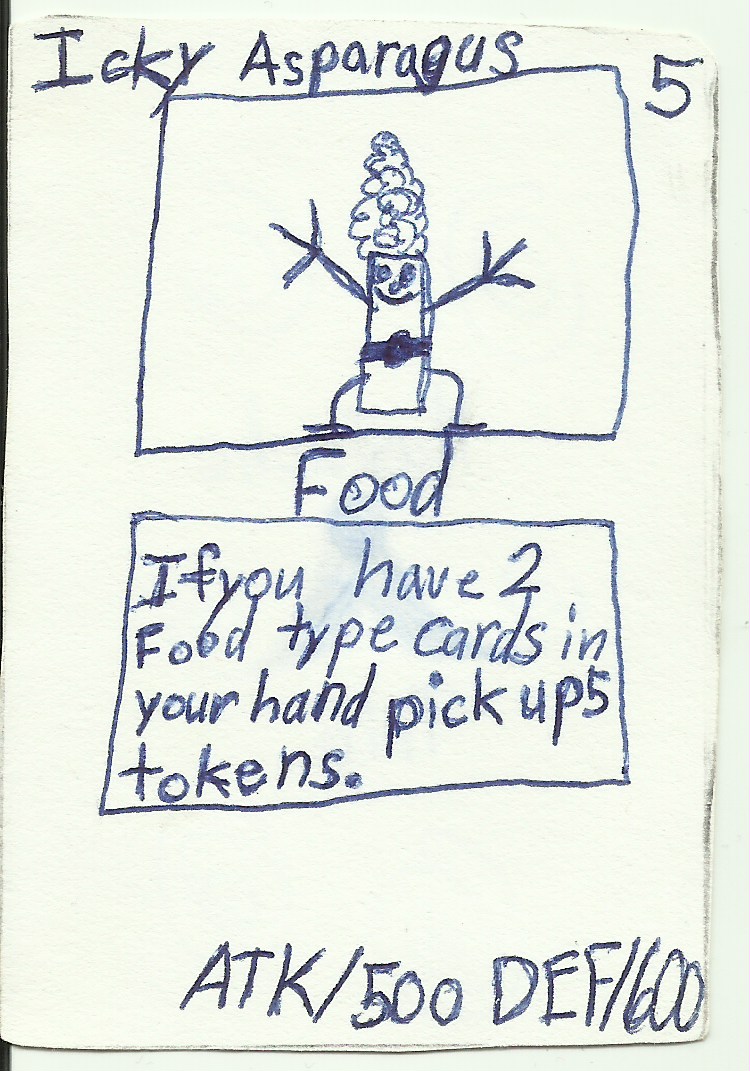 Icky Asparagus
5
Food
If you have 2
Food type cards in
your hand pick up 5
tokens.
ATK/500 DEF/600